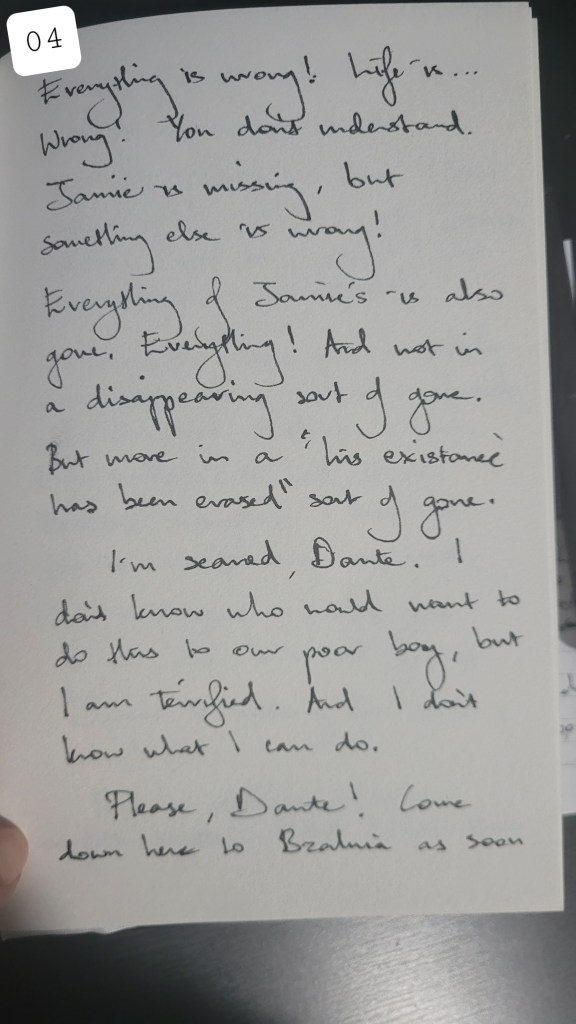 04
Everything is wrong! Life is...
Wrong! You don't understand.
Jamie is missing, but
something else is wrong!
Everything of Jamie's is also
gone. Everything! And not in
a disappearing sort of gone.
But more in a "his existance
has been erased" sort of gone.
I'm scared, Dante. I
don't know who would want to
do this to our poor boy, but
I am terrified. And I don't
know what I can do.
Please, Dante! Come
down here to as soon